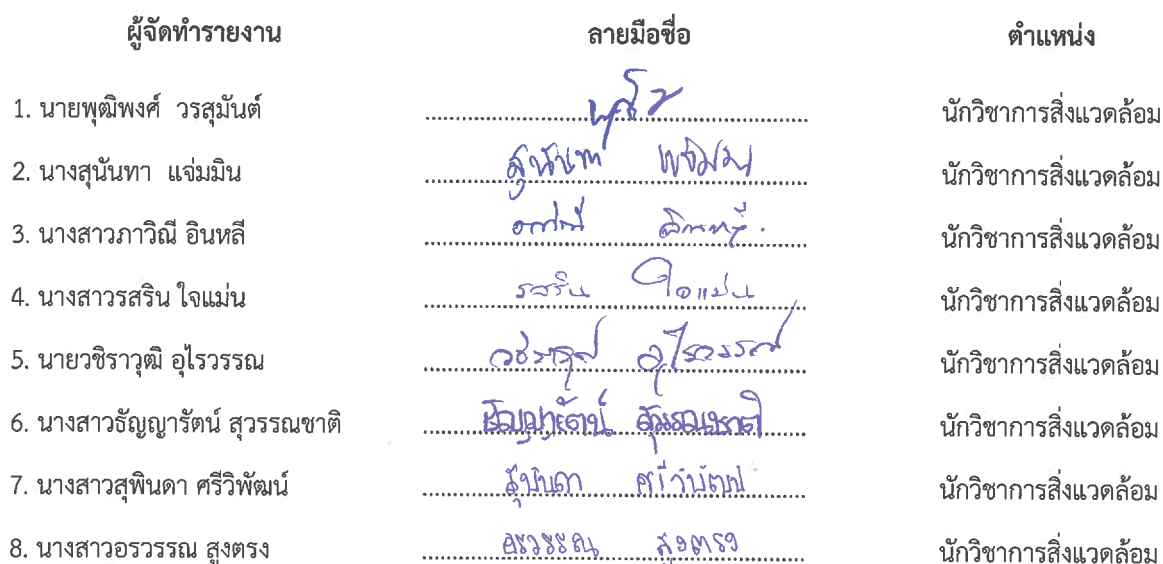 ผู้จัดทำรายงาน ลายมือชื่อ ตำแหน่ง
1. นายพุฒิพงศ์ วรสุมันต์ นักวิชาการสิ่งแวดล้อม
2. นางสุนันทา แจ่มมิน สุนันทา แจ่มมิน นักวิชาการสิ่งแวดล้อม
3. นางสาวภาวิณี อินหลี นักวิชาการสิ่งแวดล้อม
4. นางสาวรสริน ใจแม่น รสริน ใจแม่น นักวิชาการสิ่งแวดล้อม
5. นายวชิราวุฒิ อุไรวรรณ อุไรวรรณ นักวิชาการสิ่งแวดล้อม
6. นางสาวธัญญารัตน์ สุวรรณชาติ ธัญญารัตน์ สุวรรณชาติ นักวิชาการสิ่งแวดล้อม
7. นางสาวสุพินดา ศรีวิพัฒน์ สุพินดา ศรีวิพัฒน์ นักวิชาการสิ่งแวดล้อม
8. นางสาวอรวรรณ สูงตรง อรวรรณ สูงตรง นักวิชาการสิ่งแวดล้อม